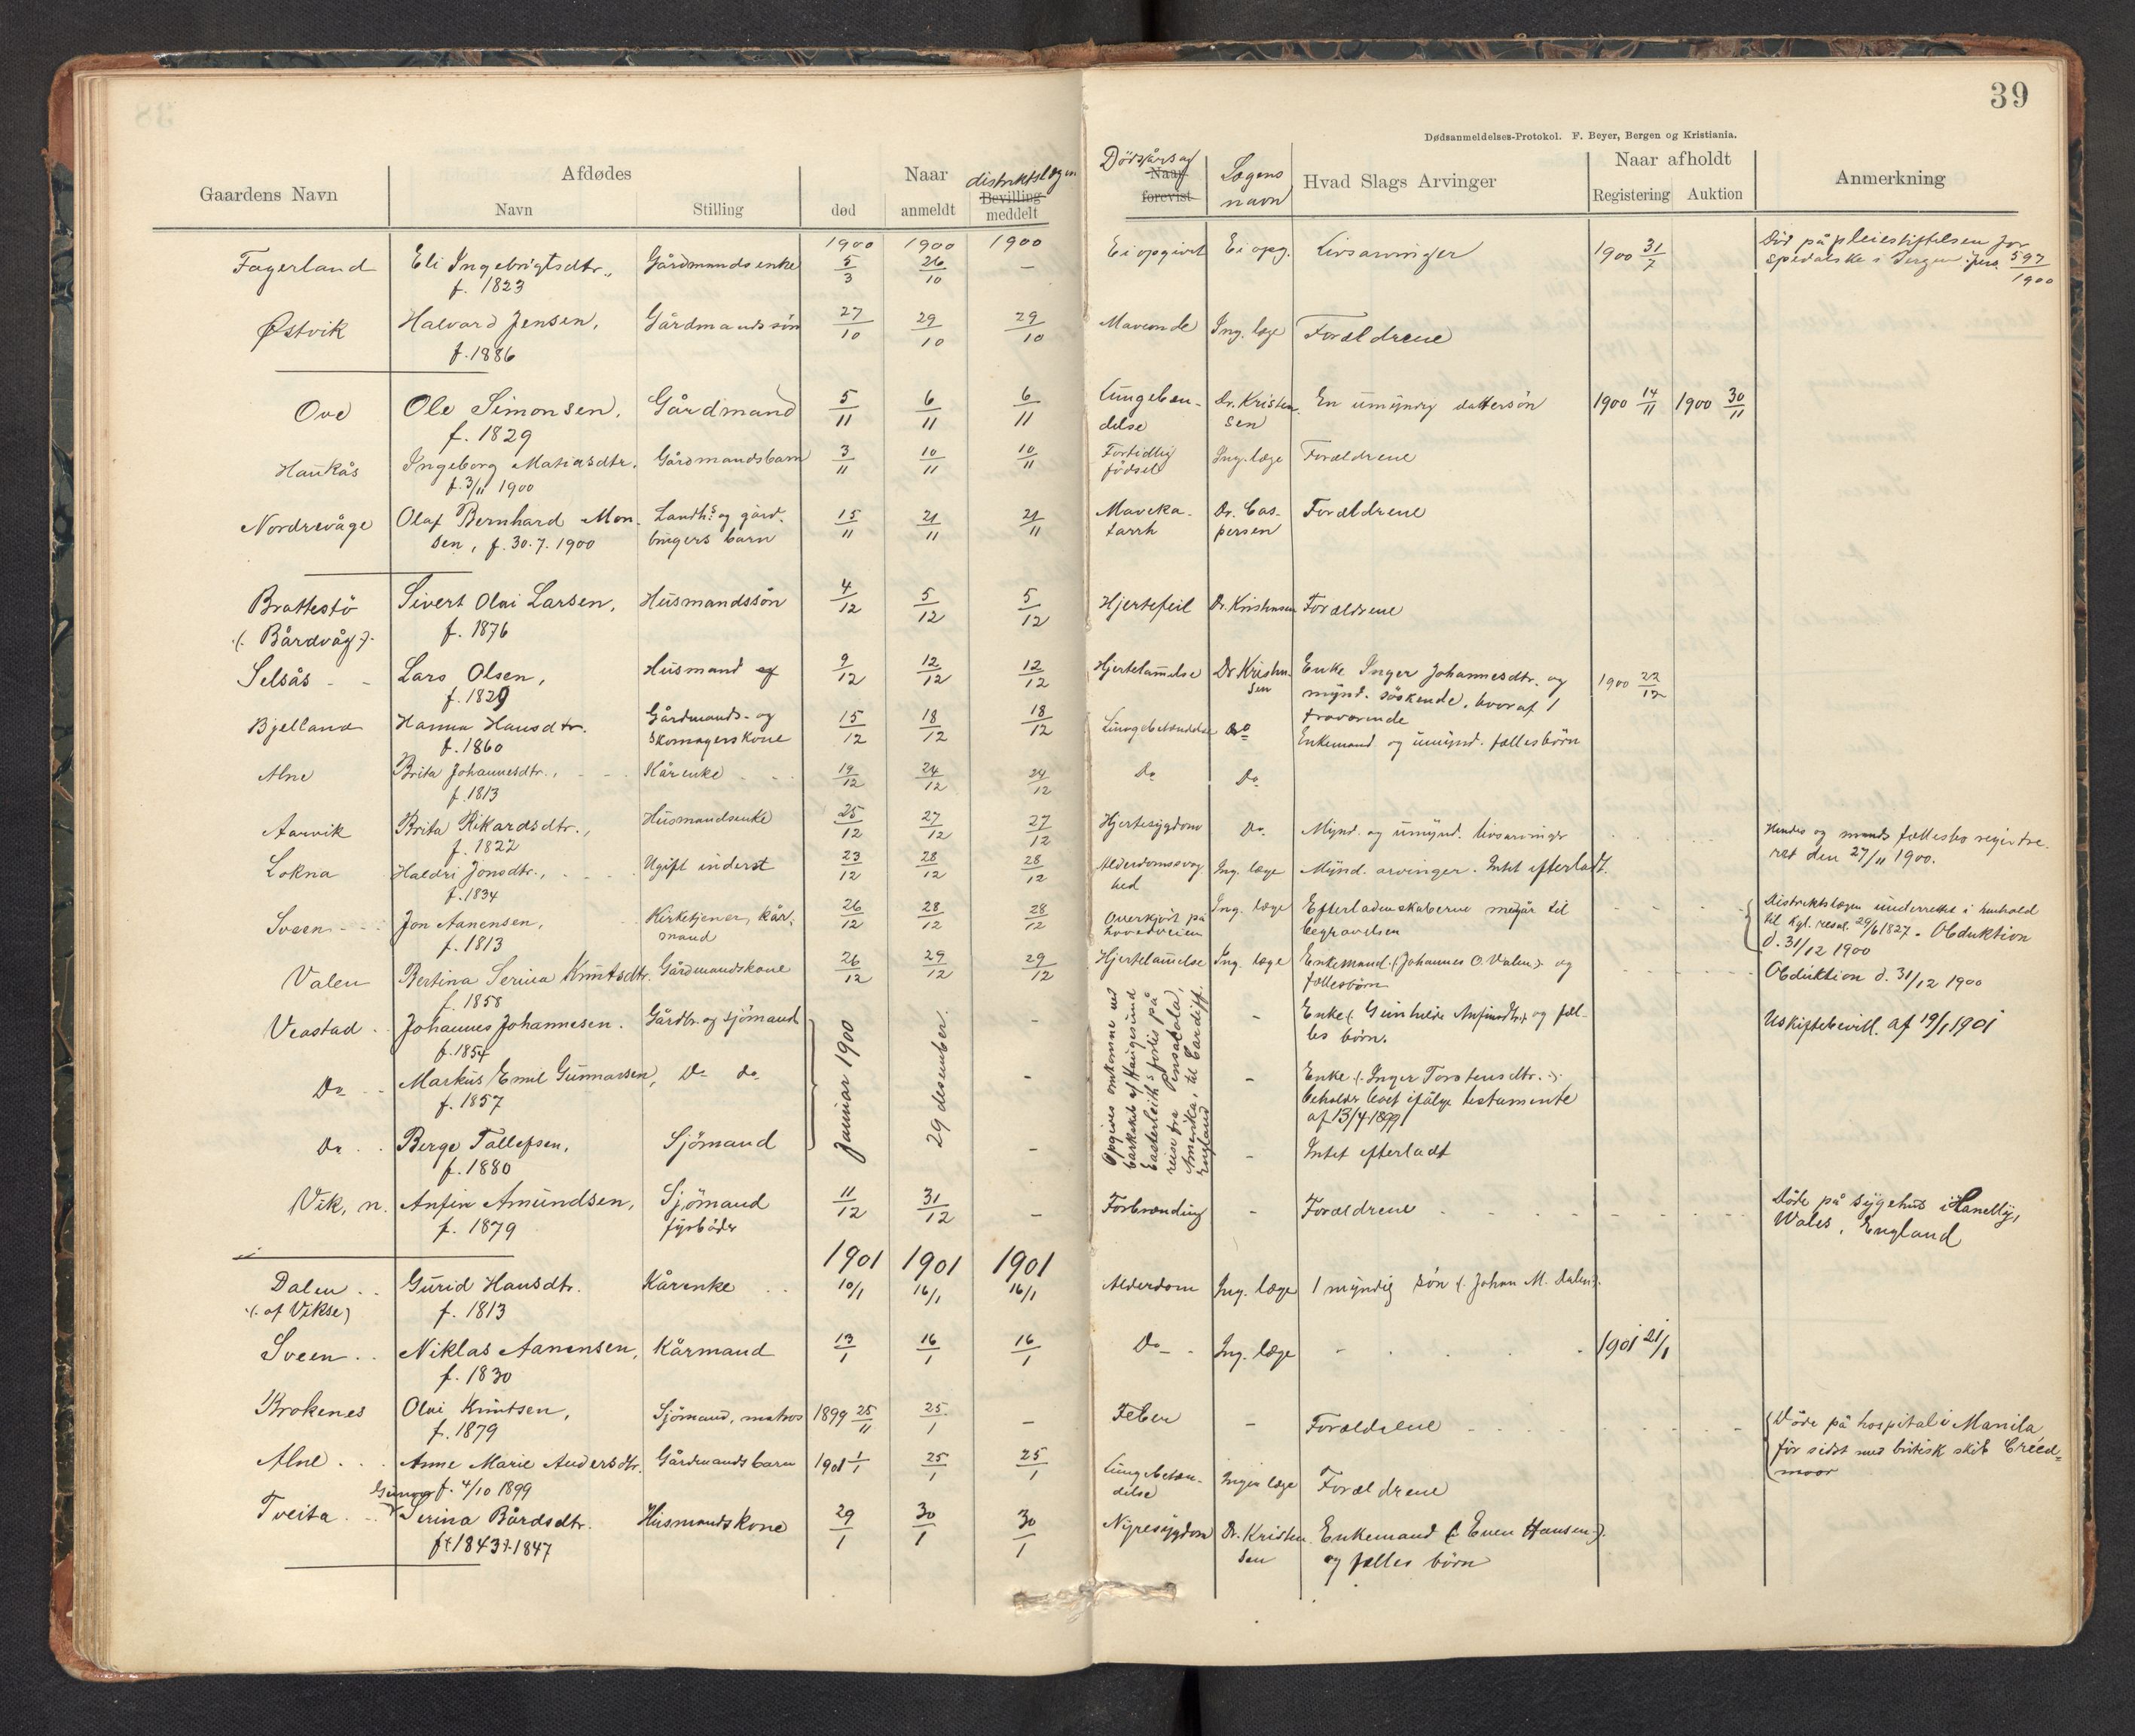 39
Dødsanmeldelses-Protokol. F. Beyer, Bergen og Kristiania.
Gaardens Navn | Afdødes | Naar | Dödsårsag Naar forevist | Lægens navn | Hvad Slags Arvinger | Naar afholdt | Anmerkning
Navn | Stilling | død | anmeldt | distriktslægen Bevilling meddelt | Registering | Auktion
1900 | 1900 | 1900
Fagerland | Eli Ingebrigtsdtr., | Gårdmandsenke | 5/3 | 26/10 | — | Ei opgivet | Ei opg. | Livsarvinger | 1900 31/7 | Död på pleiestiftelsen for
f. 1823 | spedalske i Bergen. Jurs. 597/1900
Østvik | Halvard Jensen, | Gårdmandssön | 27/10 | 29/10 | 29/10 | Maveonde | Ing. læge | Forældrene
f. 1886
Ove | Ole Simonsen, | Gårdmand | 5/11 | 6/11 | 6/11 | Lungebæn- | Dr. Kristen | En umyndig dattersön | 1900 14/11 | 1900 30/11
f. 1829 | delse | sen
Haukås | Ingeborg Matiasdtr. | Gårdmandsbarn | 3/11 | 10/11 | 10/11 | Fortidlig | Ing. læge | Forældrene
f. 3/11 1900 | födsel
Nordrevåge | Olaf Bernhard Mon- | Landh.s og gård- | 15/11 | 21/11 | 21/11 | Maveka- | Dr. Cas- | Forældrene
sen, f. 30.7.1900 | brugers barn | tarrh | persen
Brattestö | Sivert Olai Larsen, | Husmandssön | 4/12 | 5/12 | 5/12 | Hjertefeil | Dr. Kristensen | Forældrene
(: Bårdvåg :) | f. 1876
Selsås | Lars Olsen, | Husmand og | 9/12 | 12/12 | 12/12 | Hjertelammelse | Dr Kristen- | Enke Inger Johannesdtr. og | 1900 22/12
f. 1829 | sen | mynd. söskende, hvoraf 1
fraværende
Bjelland | Hanna Hansdtr. | Gårdmands- og | 15/12 | 18/12 | 18/12 | Lungebetændelse | Do | Enkemand og umynd. fællesbörn
f. 1860 | Skomagerskone
Alne | Brita Johannesdtr., | Kårenke | 19/12 | 24/12 | 24/12 | Do | Do
f. 1813
Aarvik | Brita Rikardsdtr., | Husmandsenke | 25/12 | 27/12 | 27/12 | Hjertesygdom | Do | Mynd. og umynd. livsarvinger | Hendes og mands fællesbo registre-
f. 1822 | ret den 27/11 1900.
Lokna | Haldri Jonsdtr., | Ugift inderst | 23/12 | 28/12 | 28/12 | Alderdomssvag | Ing. læge | Mynd. arvinger. Intet efterladt.
f. 1834 | hed
Sveen | Jon Aanensen, | Kirketjener, kår- | 26/12 | 28/12 | 28/12 | Overkjört på | Ing. læge | Efterladenskaberne medgår til | Distriktslægen underrettet i henhold
f. 1813 | mand | hovedveien | begravelsen | til kgl. resol. 29/6 1827. Obduktion
d. 31/12 1900
Valen | Bertina Serina Knutsdtr. | Gårdmandskone | 26/12 | 29/12 | 29/12 | Hjertelammelse | Ing. læge | Enkemand (Johannes O. Valen) og | Obduktion d. 31/12 1900
f. 1858 | fællesbörn
Veastad | Johannes Johannesen. | Gårdbr. og sjömand | – | – | Enke (Gunhilde Anfinsdtr.) og fæl- | Uskiftebevill. af 19/1 1901
f. 1854 | les börn.
Do | Markus Emil Gunnarsen, | Do do | – | – | Enke (: Inger Torstensdtr. :)
f. 1857 | beholder boet ifölge testamente
af 13/4 1899
Do | Berge Tallefsen, | Sjömand | – | – | Intet efterladt
f. 1880
Januar 1900
29 desember.
Opgives omkommet med
barkskib af Haugesund
Easterleith's forlis på
reise fra Pensacola,
Amerika, til Cardiff,
England
Vik, n. | Anfin Amundsen, | Sjömand | 11/12 | 31/12 | – | Forbrænding | – | Forældrene | Döde på sygehus i Lanelly,
f. 1879 | fyrböder | Wales, England
1901 | 1901 | 1901
Dalen | Gurid Hansdtr. | Kårenke | 10/1 | 16/1 | 16/1 | Alderdom | Ing. læge | 1 myndig sön (: Johan M. Dalen :)
(: af Vikse) | f. 1813
Sveen | Niklas Aanensen, | Kårmand | 13/1 | 16/1 | 16/1 | Do | Ing. læge | 1901 21/1
f. 1830
Brokenes | Olai Knutsen, | Sjömand, matros | 1899 25/11 | 25/1 | – | Feber | – | Forældrene | Döde på hospital i Manila
f. 1879 | för sidst med britisk skib Creed-
moor
Alne | Anne Marie Andersdtr. | Gårdmandsbarn | 1901 1/1 | 25/1 | 25/1 | Lungebetæn- | Ingen læge | Forældrene
f. 4/10 1899 | delse
Gunvor
Tveita | Serina Bårdsdtr. | Husmandskone | 29/1 | 30/1 | 30/1 | Nyresygdom | Dr. Kristen | Enkemand (: Even Hansen :)
f. 1843 1847 | sen | og fælles börn